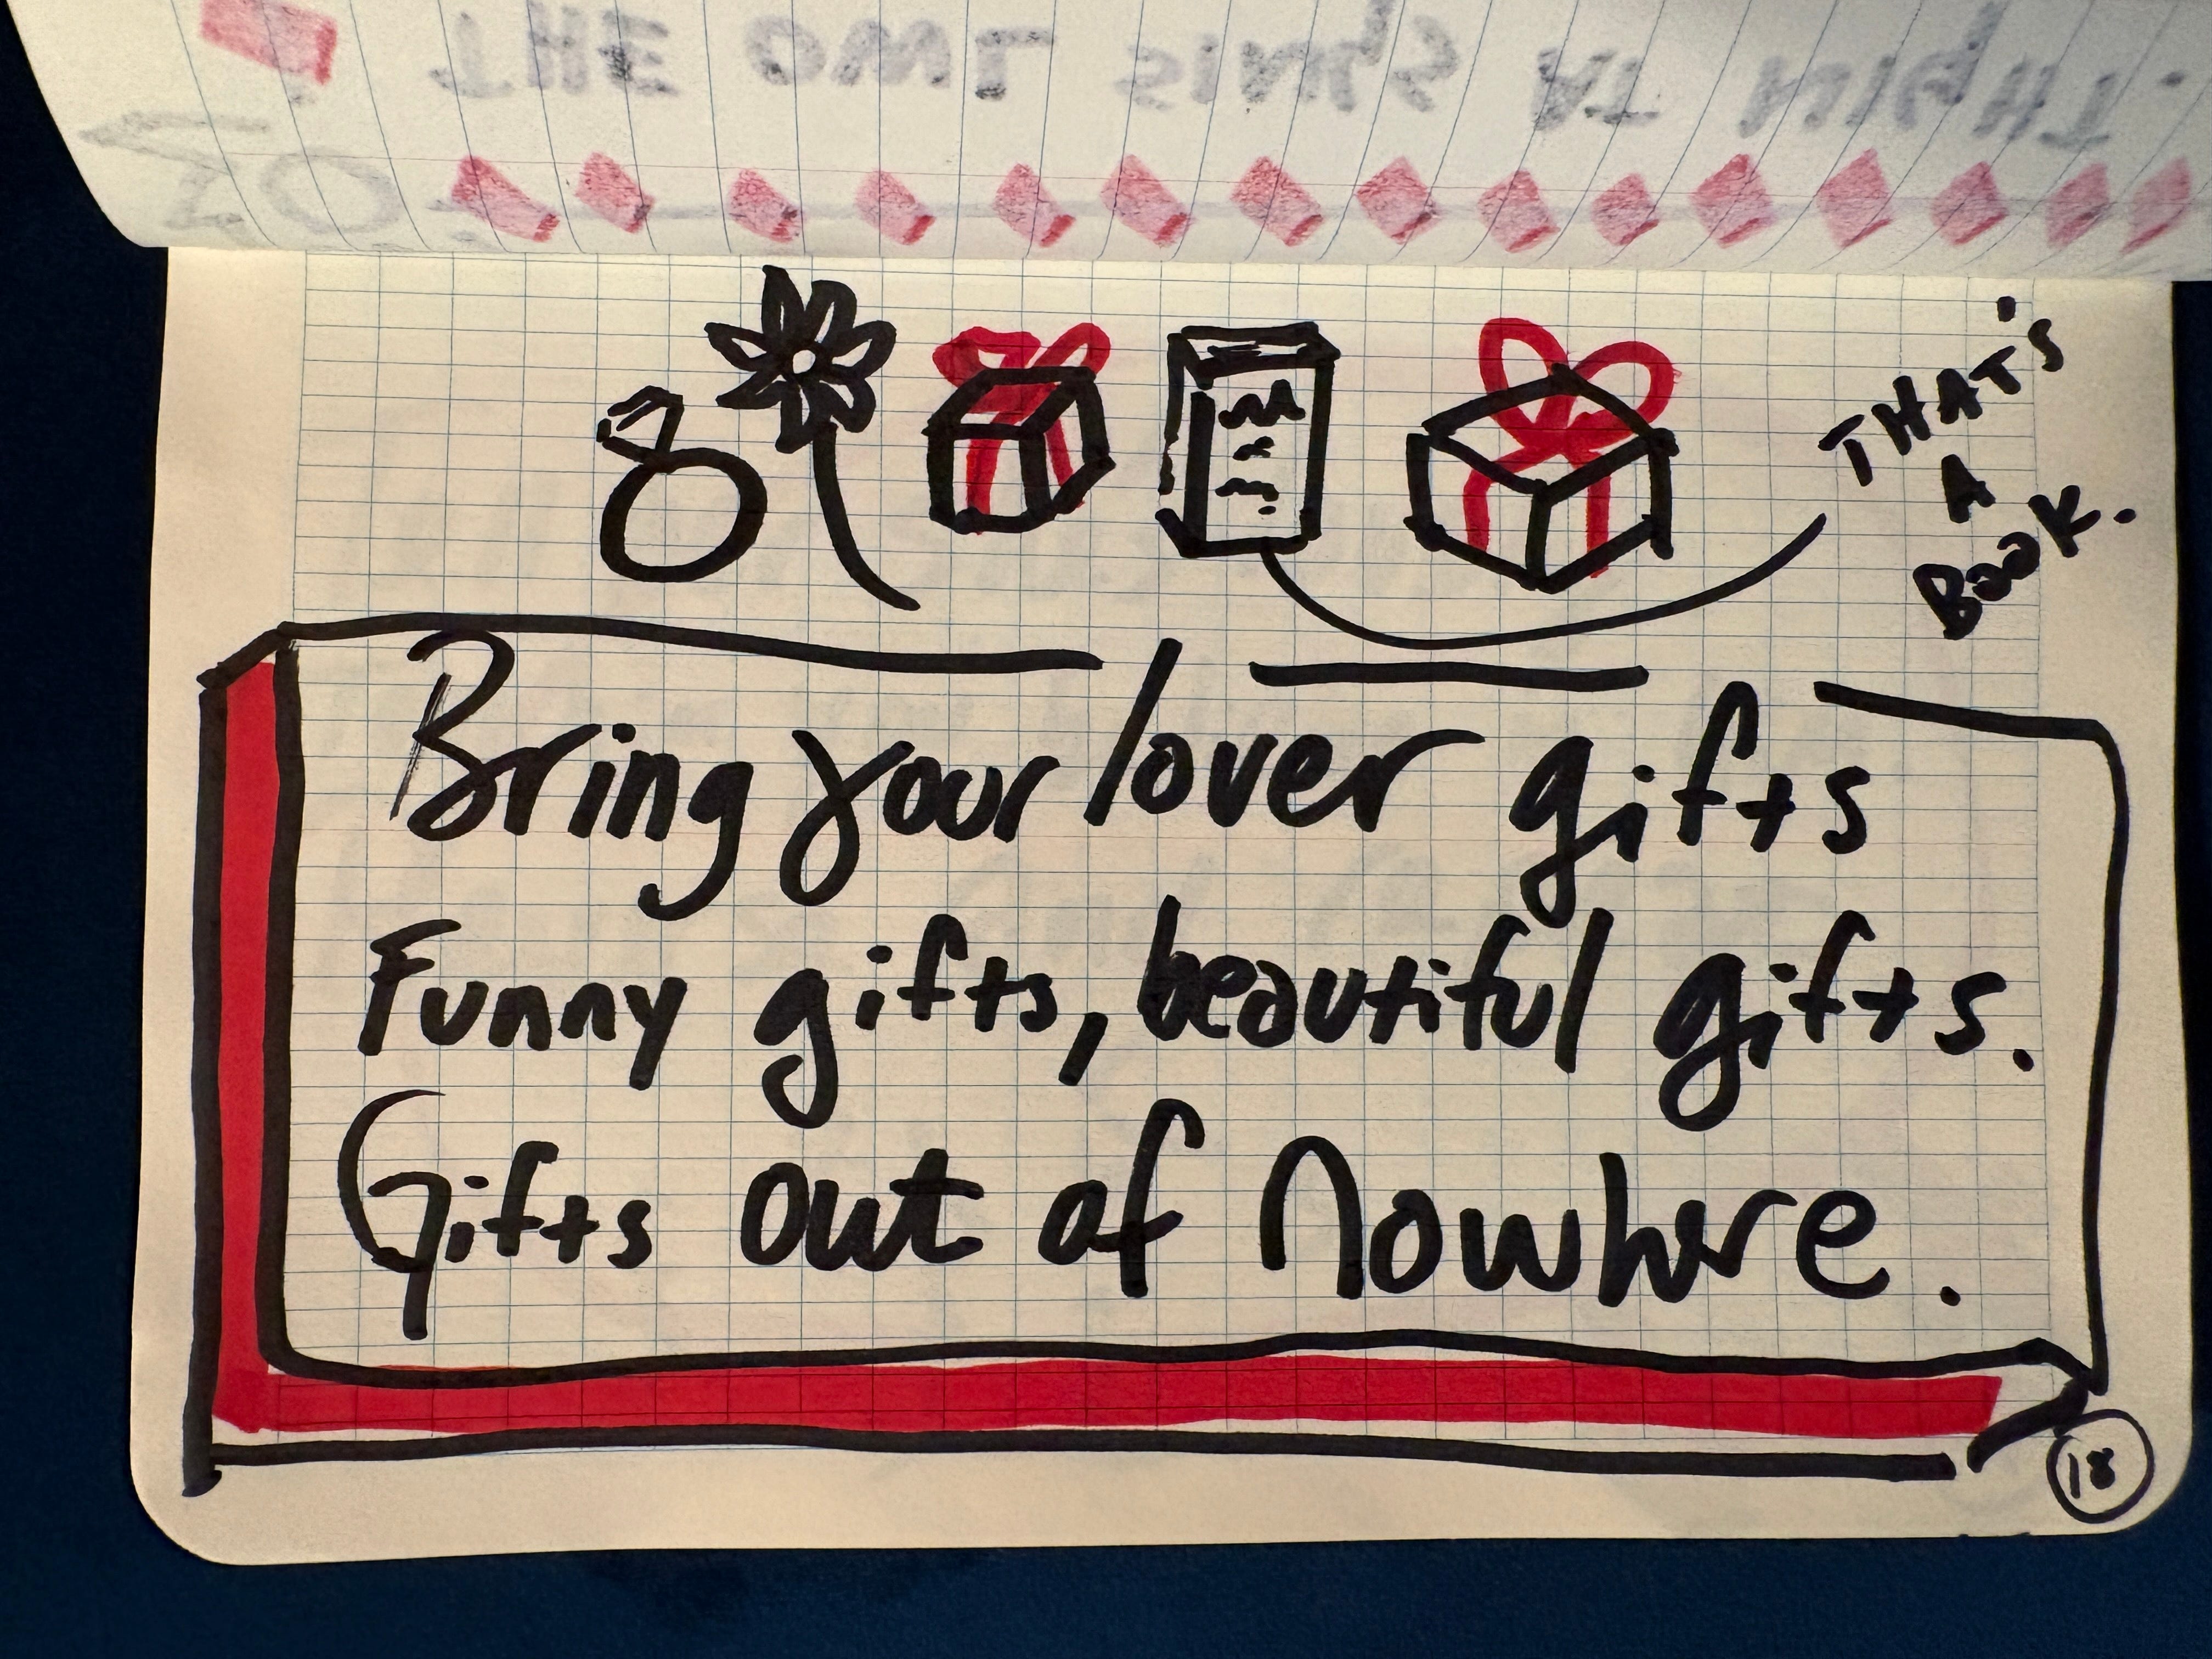 THAT'S
A
BOOK.
Bring your lover gifts
Funny gifts, beautiful gifts.
Gifts out of Nowhere.
18